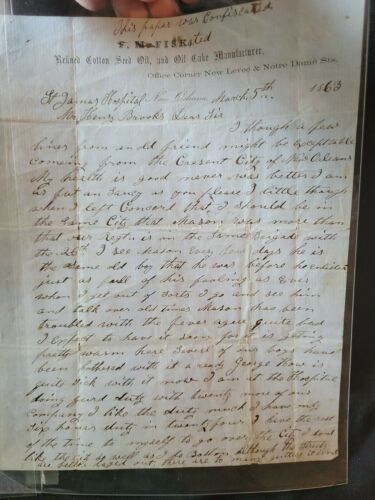 This paper was Confiscated
F. M. FISK,
Refined Cotton Seed Oil, and Oil Cake Manufacturer,
Office Corner New Levee & Notre Dame Sts.
St James Hospital New Orleans March 5th 1863
Mr Henry Brooks Dear Sir
I though a few
lines from an old friend might be exceptable
comeing from the Cresent City of New Orleans
My health is good never was better I am
as fat an saucy as you please I little though
when I left Concord that I should be in
the same City that Mason was more than
that our Regtn is in the same Brigade with
the 26th I see Mason every few days he is
the same old boy that he was before he enlisted
just as full of his fooling as ever
when I get out of sorts I go and see him
and talk over old times Mason has been
troubled with the fever ague quite bad
I expect to have it soon for it is getting
pretty warm here Severl of our boys have
been bothered with it a ready George How is
quite sick with it now I am at the Hospital
doing guard duty with twenty more of our
company I like the duty much I have only
six hours duty in twenty four I have the rest
of the time to myself to go over the City I dont
like this city so well as I do Boston although the streets
are better laged out there are to many gutters